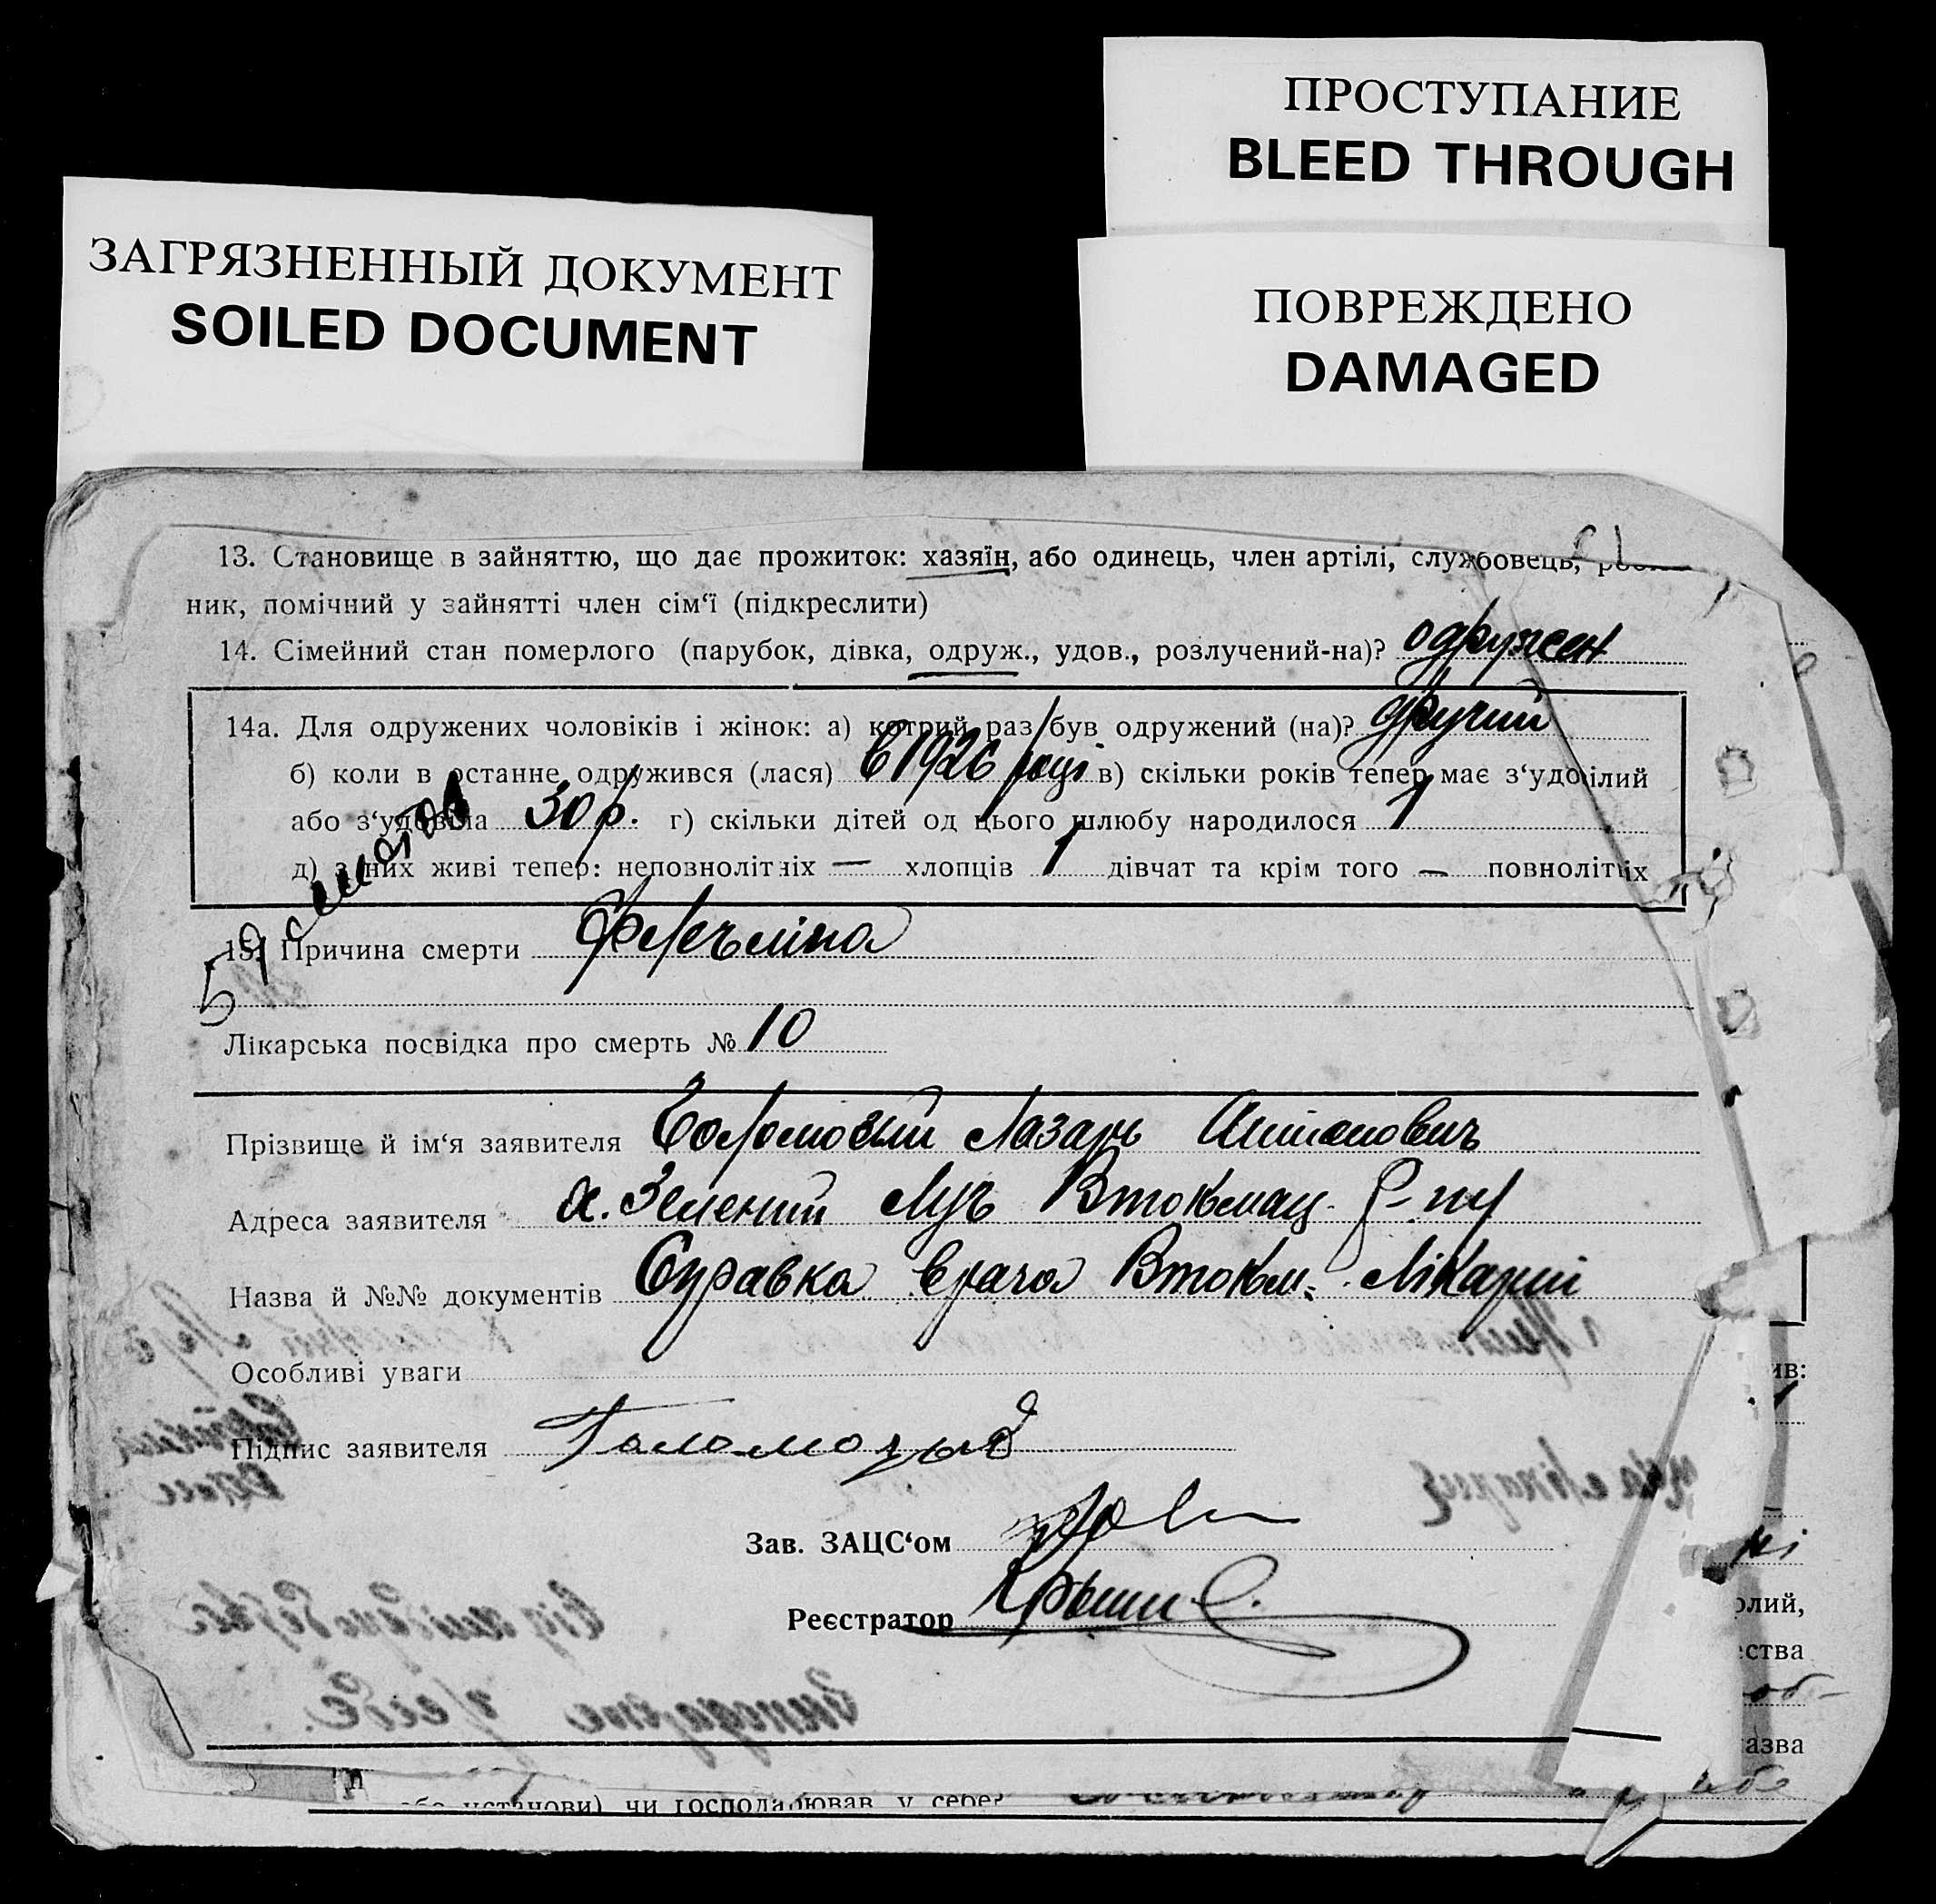 ПРОСТУПАНИЕ
BLEED THROUGH
ЗАГРЯЗНЕННЫЙ ДОКУМЕНТ
SOILED DOCUMENT
ПОВРЕЖДЕНО
DAMAGED
13. Становище в зайняттю, що дає прожиток: хазяїн, або одинець, член артілі, службовець,
ник, помічний у зайнятті член сім‘ї (підкреслити)
14. Сімейний стан померлого (парубок, дівка, одруж., удов., розлучений-на)? одружен
14а. Для одружених чоловіків і жінок: а) котрий раз був одружений (на)? другий
б) коли в останне одружився (лася) в 1926 році в) скільки років тепер має з‘удовілий
або з‘удовіла 30 р. г) скільки дітей од цього шлюбу народилося 1
д) з них живі тепер: непознолітніх — хлопців 1 дівчат та крім того — повнолітніх
15. Причина смерти
Лікарська посвідка про смерть № 10
Прізвище й ім‘я заявителя Лазарь
Адреса заявителя х. Зелений Луг Втокмац. р-ну
Назва й №№ документів Справка врача Втокм. Лікарні
Особливі уваги
Підпис заявителя
Зав. ЗАЦС‘ом
Реєстратор
ив:
олий,
ства
азва
або установи) чи господарював у серед